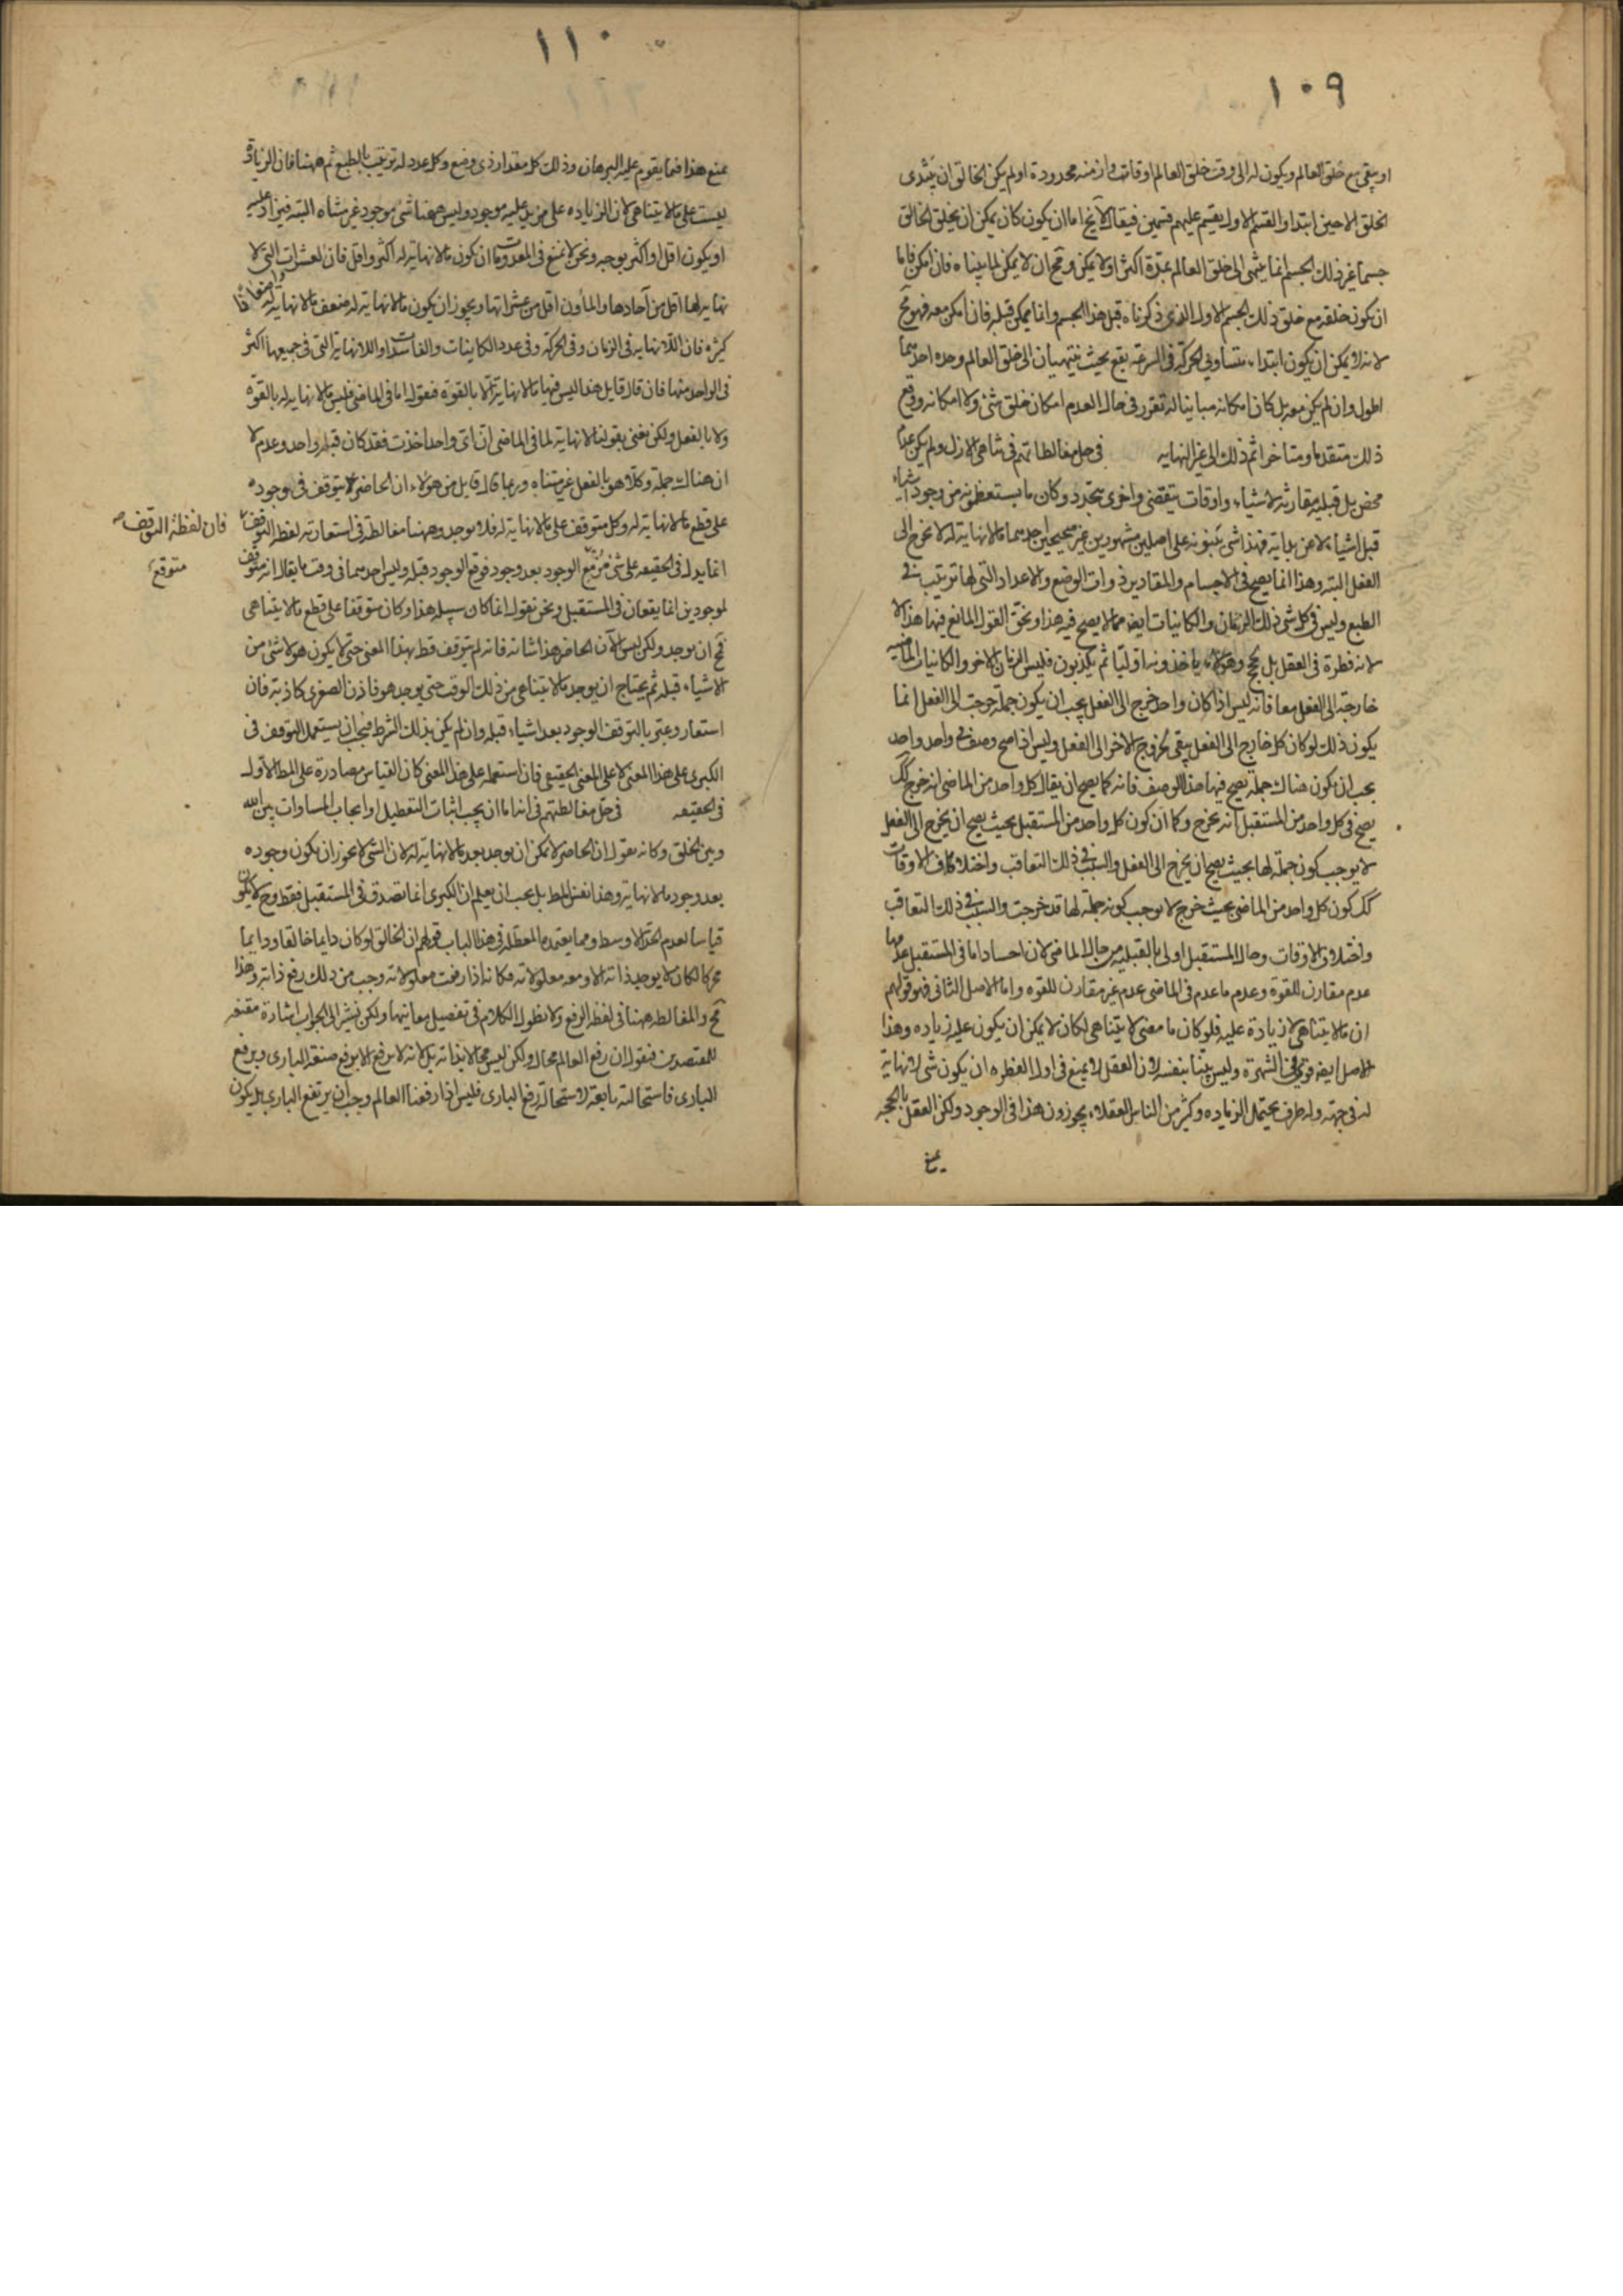 ١٠٩
او يبقى مع خلق العالم ويكون له الى وقت خلق العالم اوقات وازمنة محدودة او لم يكن الخالق ان يبتدى
الخلق الا حين ابتدا والقسم الاول يقسم عليهم قسمين فيقال اما ان يكون كان يمكن ان يخلق الخالق
جسما غير ذلك الجسم انما ينتهى الى خلق العالم بمدة اكثر او لا يمكن ومح ان لا يمكن لما بيناه فان امكن فاما
ان يكون خلقه مع خلق ذلك الجسم الاول الذى ذكرناه قبل هذا الجسم وانما يمكن قبله فان امكن معه فهو مح
لانه لا يمكن ان يكون ابتداء متساوي الحركة في السرعة يقع بحيث ينتهيان الى خلق العالم وحده احدهما
اطول وان لم يكن معه بل كان امكانه مباينا له تقرر في حال العدم امكان خلق شئ ولا امكانه ووقع
ذلك متقدما ومتاخرا ثم ذلك الى غير النهايه في حل مغالطاتهم في تناهى الازل ولم يكن عدم
محض بل قبليه مقارنة لاشياء واوقات تنقضى واخرى تتجدد وكان ما يستعظمونه من وجود اشياء
قبل اشياء لا عن بداية فهذا شى يبنونه على اصلين مشهورين غير صحيحين احدهما ما لا نهاية له لا يخرج الى
الفعل البته وهذا انما يصح في الاجسام والمقادير ذوات الوضع والاعداد التي لها ترتيب في
الطبع وليس في كل شى ذلك الزمان والكائنات ايضا مما لا يصح فيه هذا ونحن القول المانع فيها هذا لا
لانه فطرة في العقل بل بحجج وهؤلاء ياخذونه اوليا ثم يكذبون فليس الزمان الاخر والكائنات الماضيه
خارجة الى الفعل معا فانه ليس اذا كان واحد خرج الى الفعل يجب ان يكون جملة خرجت الى الفعل انما
يكون ذلك لو كان كل خارج الى الفعل يبقى لخروج الاخر الى الفعل وليس اذا صح وصف في واحد واحد
يجب ان يكون هناك جملة يصح فيها هذا الوصف فانه كما يصح ان يقال كل واحد من الماضى انه خرج كك
يصح في كل واحد من المستقبل انه يخرج وكما ان كون كل واحد من المستقبل بحيث يصح ان يخرج الى الفعل
لا يوجب كون جملة لها بحيث يصح ان يخرج الى الفعل والسبب في ذلك التعاقب واختلاف الاوقات
كك كون كل واحد من الماضى بحيث خرج لا يوجب كونه جملة لها قد خرجت والسبب في ذلك التعاقب
واختلاف الاوقات وحال المستقبل اولى بالقبليه من حال الماضى لان اما في المستقبل عدمها
عدم مقارن للقوة وعدم ما عدم في الماضى عدم غير مقارن للقوه واما الاصل الثانى فهو قولهم
ان ما لا يتناهى لا زيادة عليه فلو كان ما مضى لا يتناهى لكان لا يمكن ان يكون عليه زياده وهذا
الاصل ايضا قوى في الشهرة وليس بينا بنفسه لان العقل لا يمنع في اول الفطره ان يكون شى لا نهاية
له في جهة وله طرف يحتمل الزياده وكثير من الناس العقلاء يجوزون هذا في الوجود ولكن العقل بالحجه
يمنع
١١٠
يمنع هذا فيما يقوم عليه البرهان وذلك كل مقدار ذى وضع وكل عدد له ترتيب بالطبع ثم ههنا فان الزيادة
ليست على ما لا يتناهى لان الزياده على مزيد عليه موجود وليس ههنا شئ موجود غير متناه البته فيزاد عليه
او يكون اقل او اكثر بوجه ونحن لا نمنع في المعدومات ان يكون ما لا نهاية له اكثر واقل فان العشرات التى لا
نهايه لها اقل من آحادها والمأون اقل من عشراتها ويجوز ان يكون ما لا نهاية له ضعف ما لا نهاية له واضعافا
كثيره فان اللانهايه في الزمان وفي الحركة وفي عدد الكاينات والفاسدات واللانهاية التى في جميعها اكثر
في الواحد منها فان قال قايل هذا ليس فيها ما لا نهاية الا بالقوة فنقول اما في الماضى فليس ما لا نهايه له بالقوة
ولا بالفعل ولكن نعنى بقولنا لا نهاية لما في الماضى ان اى واحد اخذت فقد كان قبله واحد وعدم لا
ان هناك جملة وكلا هو بالفعل غير متناه وربما قال قايل من هؤلاء ان الحاضر لا يتوقف في وجوده
على قطع ما لا نهاية له وكل متوقف على ما لا نهاية له فلا يوجد وههنا مغالطة في استعارة لفظ التوقف
فان لفظة التوقف صح
انما يدل في الحقيقه على شئ الوجود بعد وجود متوقع الوجود قبله وليس احدهما في وقت ما يقال انه متوقف
متوقع
لموجودين انما يقعان في المستقبل ونحن نقول انما كان سبيله هذا وكان متوقفا على قطع ما لا يتناهى
مح ان يوجد ولكن ليس الآن الحاضر هذا شانه فانه لم يتوقف قط بهذا المعنى حتى لا يكون هو لا شى من
الاشياء قبله ثم يحتاج ان يوجد ما لا يتناهى من ذلك الوقت حتى يوجد هو فاذن الصغرى كاذبة فان
استعار وعبر بالتوقف الوجود بعد اشياء قبله وان لم يكن بذلك الشرط فيجب ان يستعمل التوقف في
الكبرى على هذا المعنى لا على المعنى الحقيقى فان استعمله على هذا المعنى كان القياس مصادرة على المط الاول
في الحقيقه في حل مغالطتهم في انه اما ان يجب اثبات التعطيل او ايجاب المساوات بين الله
وبين الخلق وكانه يقول ان الحاضر لا يمكن ان يوجد بعد ما لا نهاية له لان الشى لا يجوز ان يكون وجوده
بعد وجود ما لا نهاية وهذا نفس المط بل يجب ان يعلم ان الكبرى انما تصدق في المستقبل فقط وح لا يكون
قياسا لعدم الحد الاوسط ومما يعتمده المعطله في هذا الباب قولهم ان الخالق لو كان دايما خالقا ودايما
محركا لكان لا يوجد ذاته الا ومعه معلولاته فكانه اذا رفعت معلولاته وجب من ذلك رفع ذاته وهذا
مح والمغالطه ههنا في لفظ الرفع ولا نطول الكلام في تفصيل معانيها ولكن نشير الى الجواب اشارة مقنعه
للمقتصدين فنقول ان رفع العالم محال ولكن ليس محالا بذاته بل لانه لا يرفع الا برفع صنعة البارى ويرفع
البارى فاستحالته تابعة لاستحالة رفع البارى فليس اذا رفعنا العالم وجب ان يرتفع البارى بل يكون